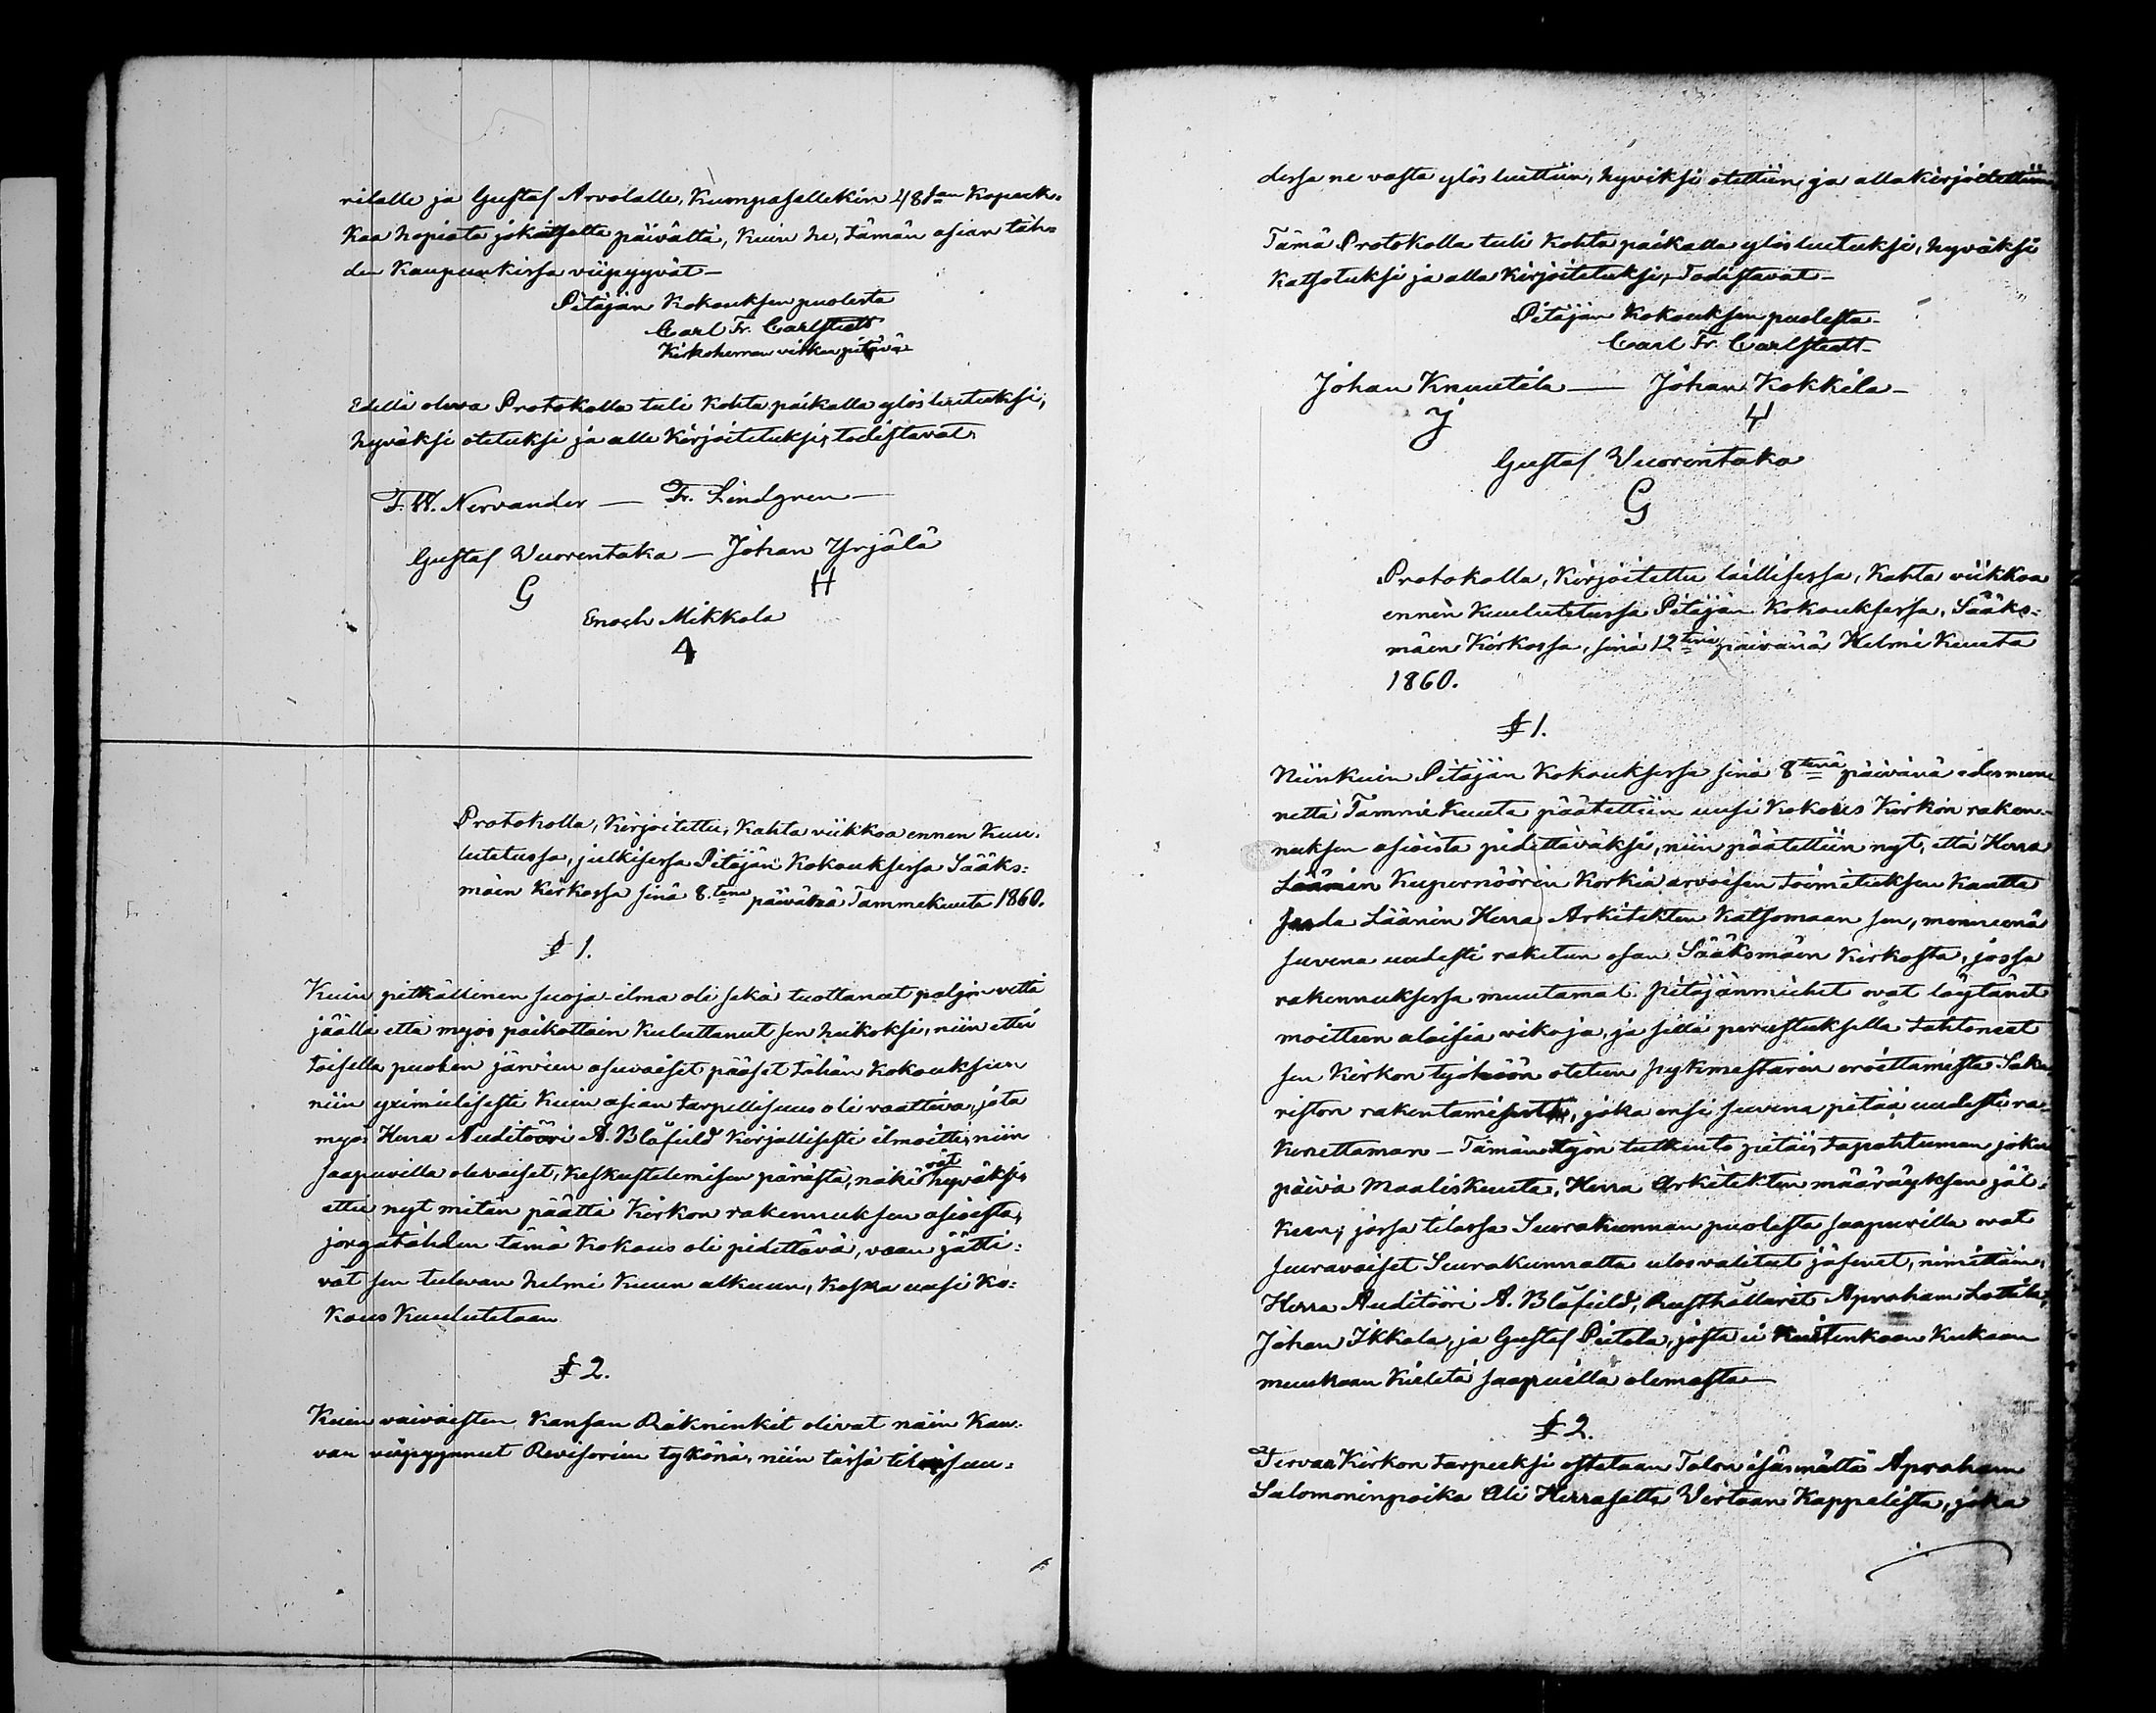 rilalle ja Gustaf Arvolalle, Kumpasallekin 48san Kopeek-
kaa hopiata jokaitsalta päivältä, Kuin he, tämän asian täh-
den Kaupunkissa viipyyvät –
Pitäjän Kokouksen puolesta
Carl Fr. Carlstedt
Kirkoherran virkaa pitävä
Edellä oleva Protokolla tuli Kohta paikalla ylösluetuksi,
hyväksi otetuksi ja alle Kirjoitetuksi, todistavat
F. W. Nervander — Fr. Lindgren —
Gustaf Wuorentaka — Johan Yrjälä
G H
Enoch Mikkola
4
Protokolla, Kirjoitettu, Kahta viikkoa ennen Kuu-
lutetussa, julkisessa Pitäjän Kokouksessa Sääks-
mäen Kirkossa sinä 8.tena päivänä Tammekuuta 1860.
§ 1.
Kuin pitkällinen suoja-ilma oli sekä tuottanut paljon vettä
jäälle että myös paikottain Kuluttanut sen heikoksi, niin ettei
toisella puolen järvien asuvaiset pääset tähän Kokouksen
niin yximielisesti Kuin asian tarpellisuus oli vaativa, jota
myös Herra Auditööri A. Blåfield Kirjallisesti ilmoitti, niin
saapuvilla olevaiset, Keskustelemisen perästä, näkivät hyväksi,
ettei nyt mitän päättä Kirkon rakennuksen asioista,
jongatähden tämä Kokous oli pidettävä, vaan jätti-
vät sen tulevan helmi Kuun alkuun, Koska uusi Ko-
kous Kuulutetaan
§ 2.
Kuin vaivaisten Kansan Räkninkit olivat näin Kau-
van viipyynnet Revisorien tykönä, niin tässä tilaisuu-
dessa ne vasta ylös luettiin, hyviksi otettiin ja alla kirjoitettiin
Tämä Protokolla tuli Kohta paikalla ylösluetuksi, hyväksi
Katsotuksi ja alla Kirjoitetuksi, Todistavat –
Pitäjän Kokouksen puolesta –
Carl Fr. Carlstedt –
Johan Knuutila — Johan Kokkila –
J 4
Gustaf Wuorentaka
G
Protokolla, Kirjoitettu laillisessa, Kahta viikkoa
ennen Kuulutetussa Pitäjän Kokouksessa, Sääks-
mäen Kirkossa, sinä 12tenä päivänä Helmi Kuuta
1860.
§ 1.
Niinkuin Pitäjän Kokouksessa sinä 8tenä päivänä edesmenne
nettä Tammi Kuuta päätettiin uusi Kokous Kirkon raken-
nuksen asioista pidettäväksi, niin päätettiin nyt, että Herra
Läänin Kupernöörin Korkia arvoisen toimituksen Kautta
saada Läänin Herra Arkitekten Katsomaan sen, menneenä
suvena uudesti raketun osan Sääksmäen Kirkosta, jossa
rakennuksessa muutamat pitäjänmiehet ovat löytänet
moitteen alaisia vikoja, ja sillä perustuksella tahtoneet
sen Kirkon työhöön otetun pykmestarin eroittamista Saka-
riston rakentamisesta, joka ensi suvena pitää uudesti ra-
kenettaman – Tämän työn tutkinto pitäis tapahtuman joku
päivä Maalis Kuuta, Herra Arkitekten määräyksen jäl-
keen; jossa tilassa Seurakunnan puolesta saapuvilla ovat
seuravaiset Seurakunnalta ulosvalitut jäsenet, nimittäin,
Herra Auditööri A. Blåfield, Rusthållarit Apraham Lottila,
Johan Ikkala, ja Gustaf Pietola, josta ei Kuitenkaan Kukaan
muukaan Kieletä saapuilla olemasta —
§ 2.
Tervaa Kirkon tarpeeksi ostetaan Talon isännältä Apraham
Salomoninpoika Ali Herrasalta Wirtain Kappelista, joka